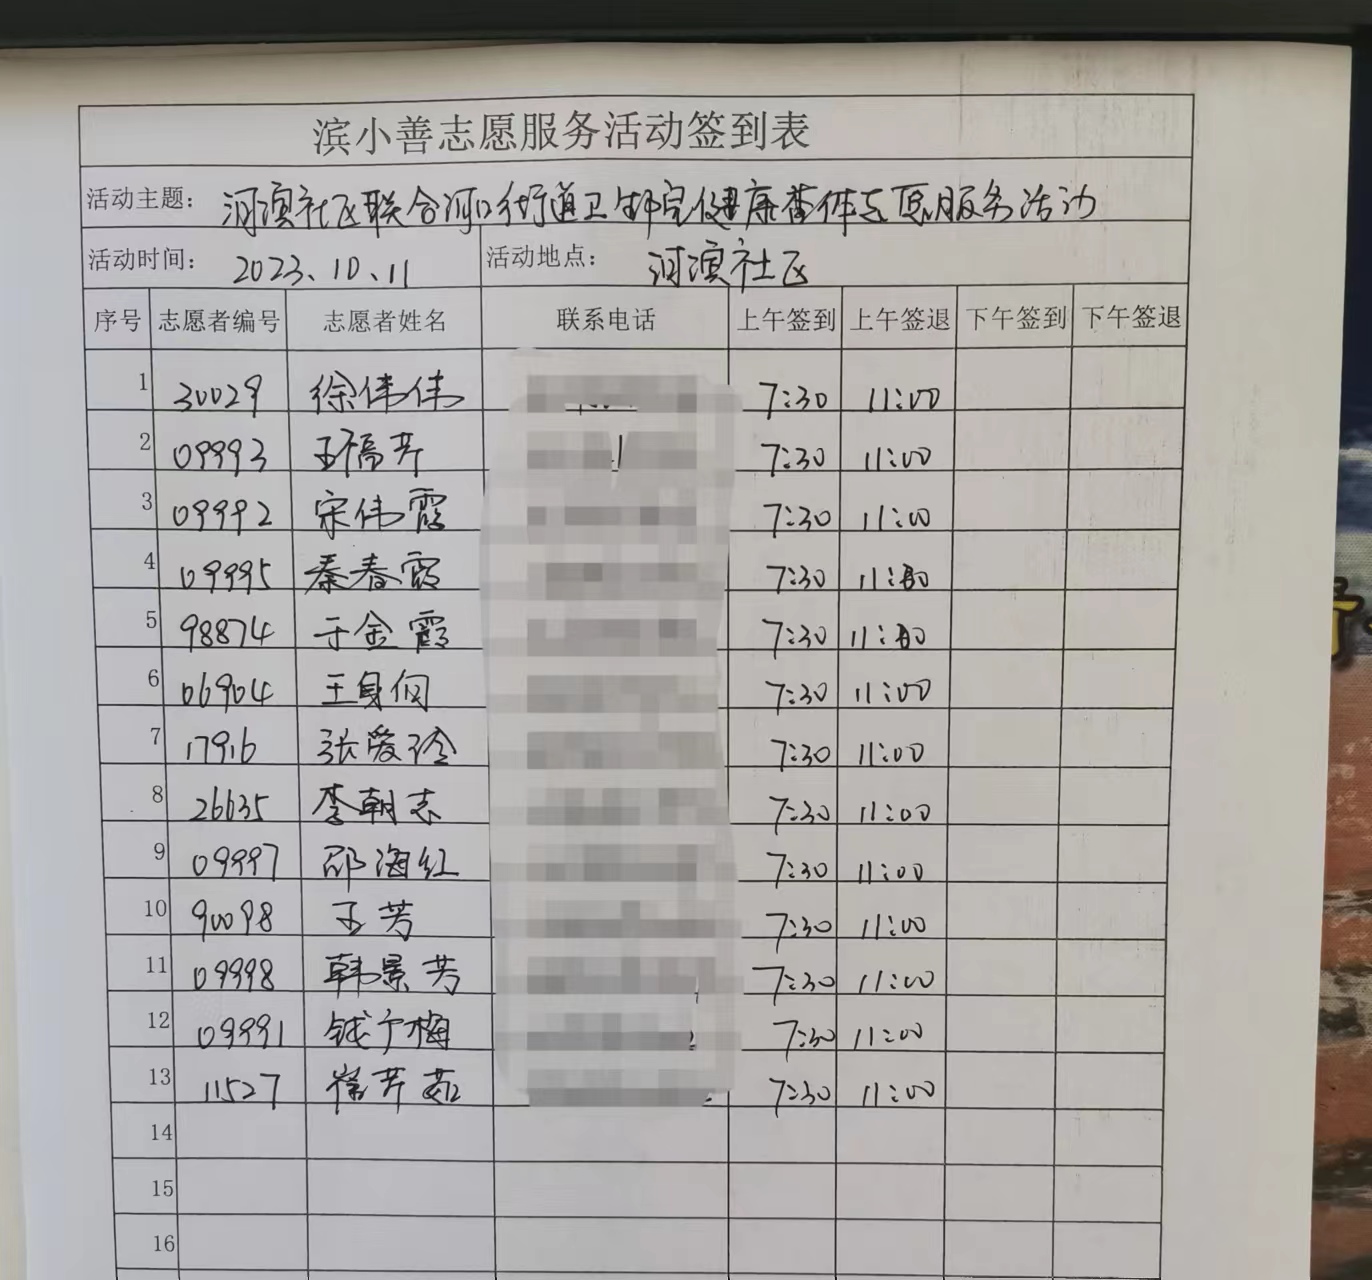 滨小善志愿服务活动签到表
活动主题： 河滨社区联合河口街道卫生院健康查体志愿服务活动
活动时间： 2023.10.11 活动地点： 河滨社区
序号 志愿者编号 志愿者姓名 联系电话 上午签到 上午签退 下午签到 下午签退
1 30029 徐伟伟 7:30 11:00
2 09993 王福芹 7:30 11:00
3 09992 宋伟霞 7:30 11:00
4 09995 秦春霞 7:30 11:00
5 98874 于金霞 7:30 11:00
6 06904 王 7:30 11:00
7 17916 张爱玲 7:30 11:00
8 26635 李朝志 7:30 11:00
9 09997 邵海红 7:30 11:00
10 90098 王芳 7:30 11:00
11 09998 韩景芳 7:30 11:00
12 09991 钱宁梅 7:30 11:00
13 11527 崔芹茹 7:30 11:00
14
15
16